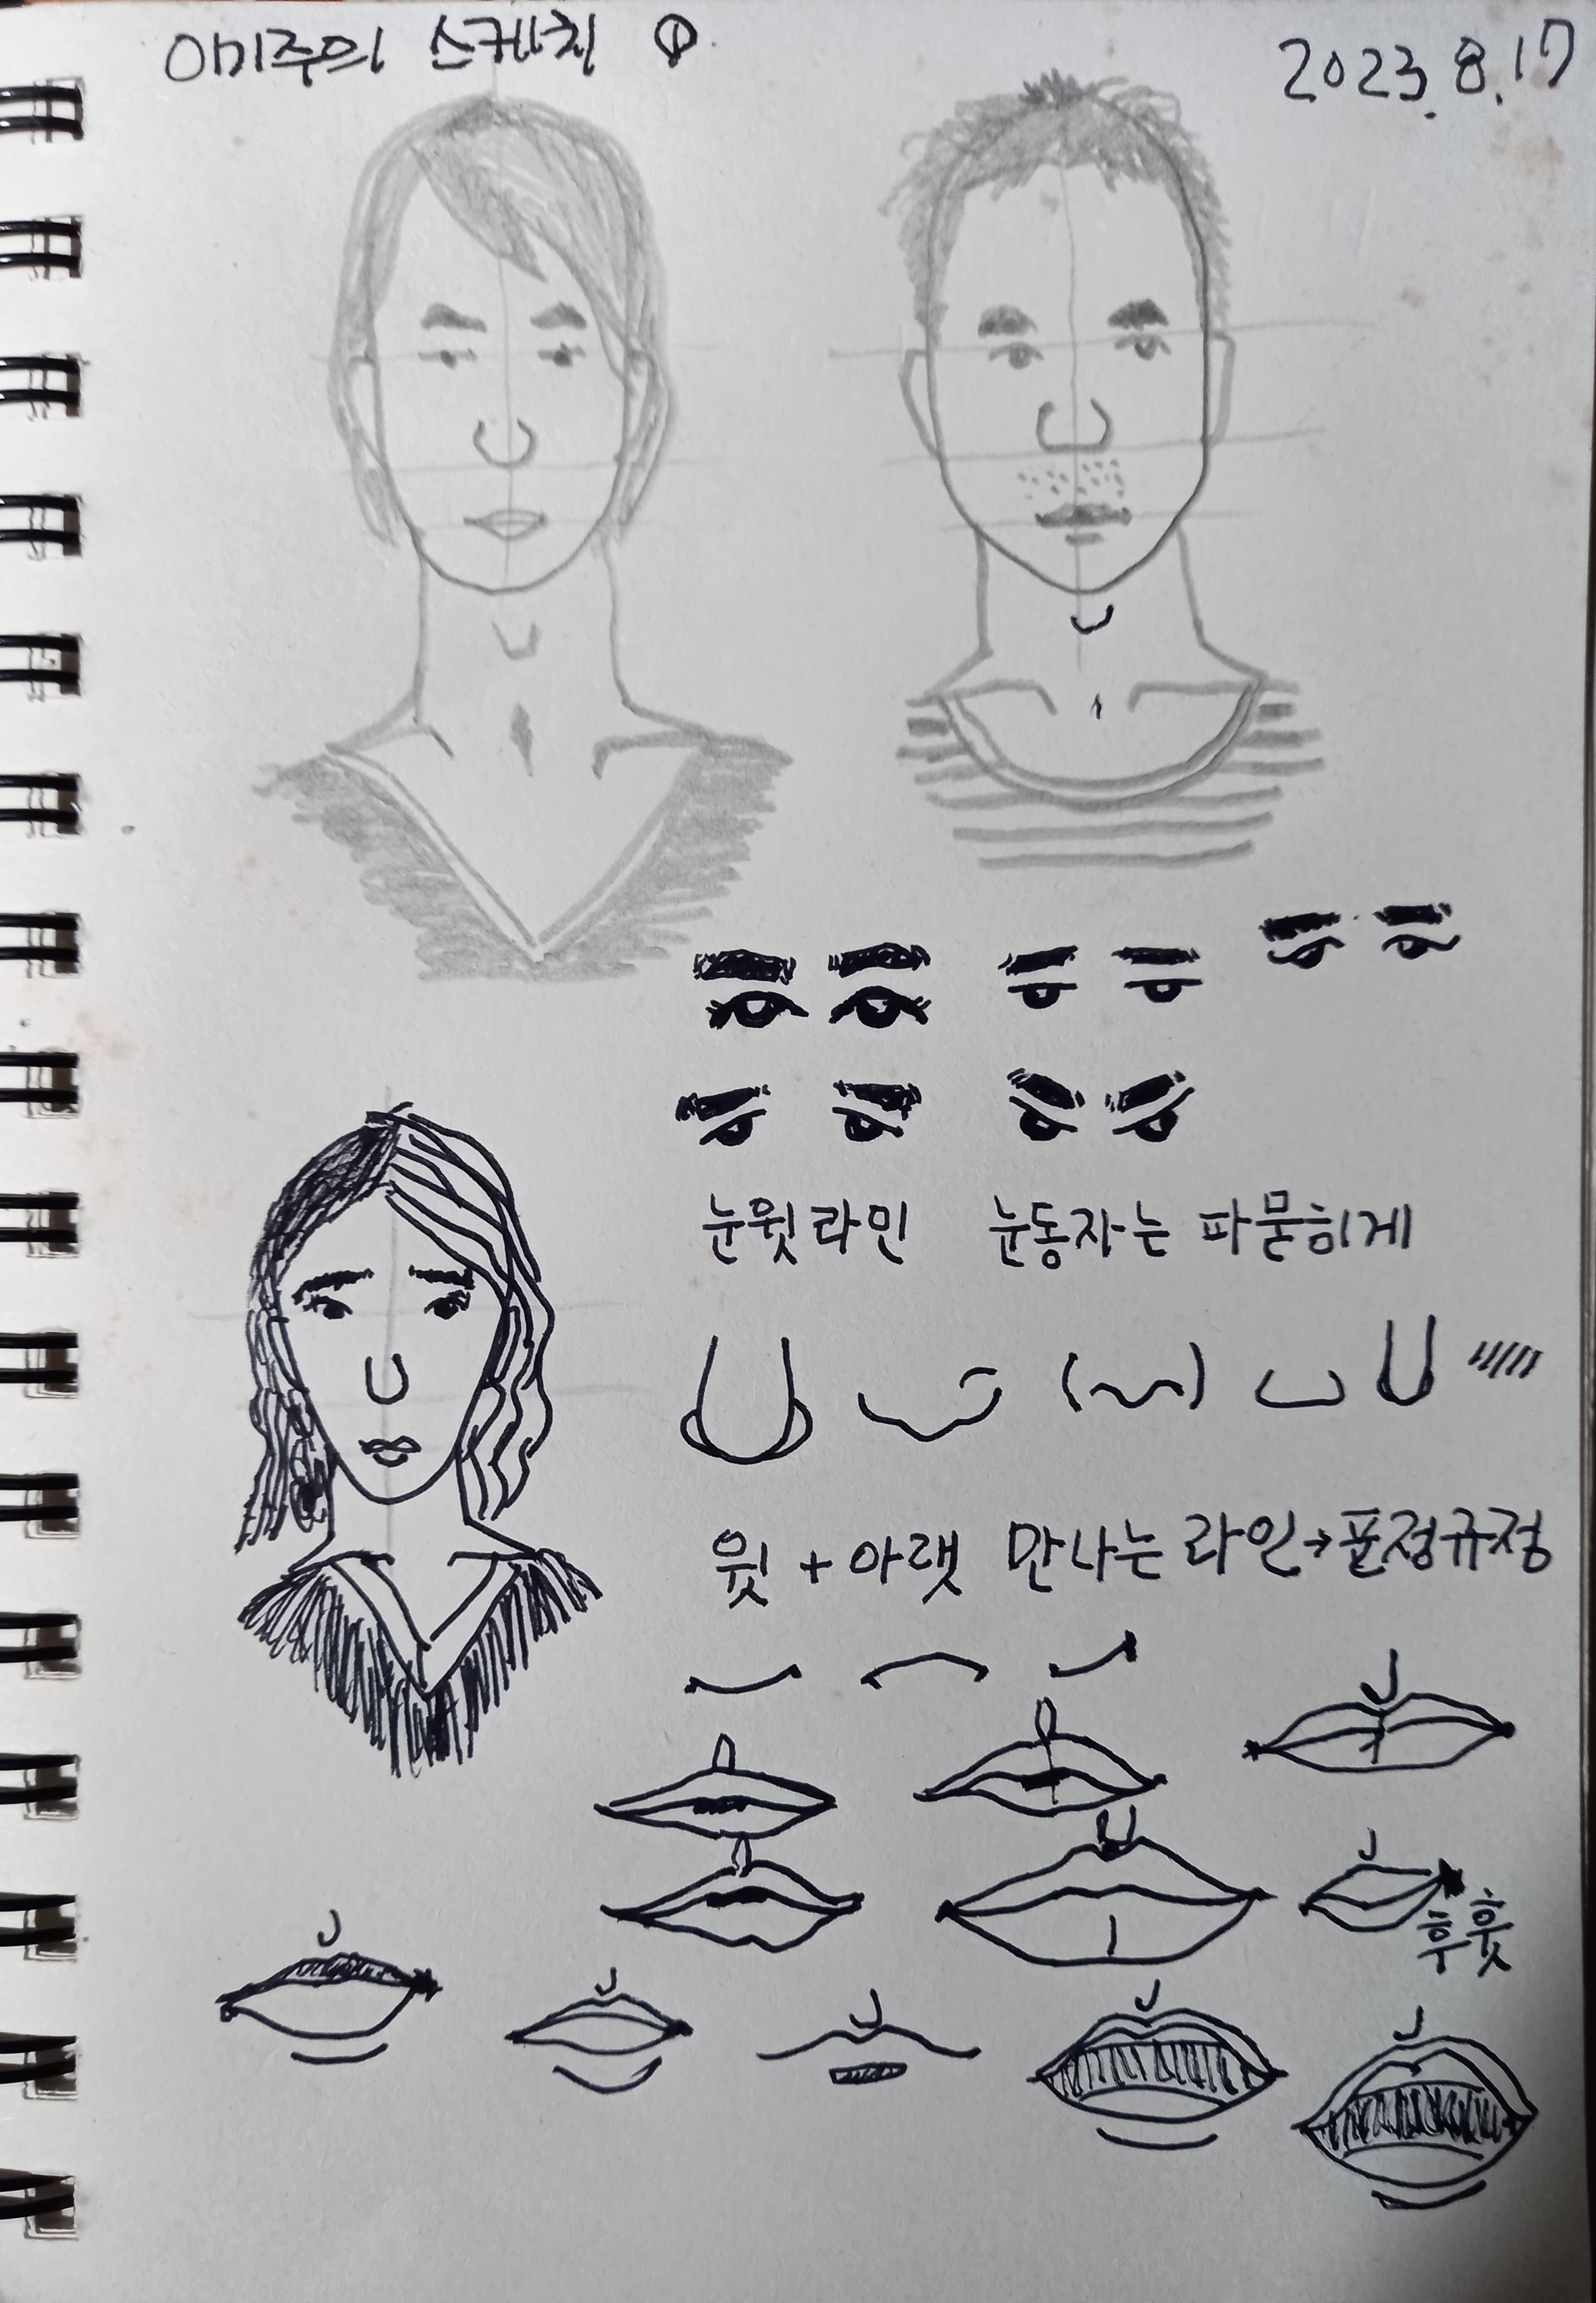 이미주의 스케치 ①
2023.8.17
눈윗라인 눈동자는 파묻히게
윗 + 아랫 만나는 라인→표정규정
후훗